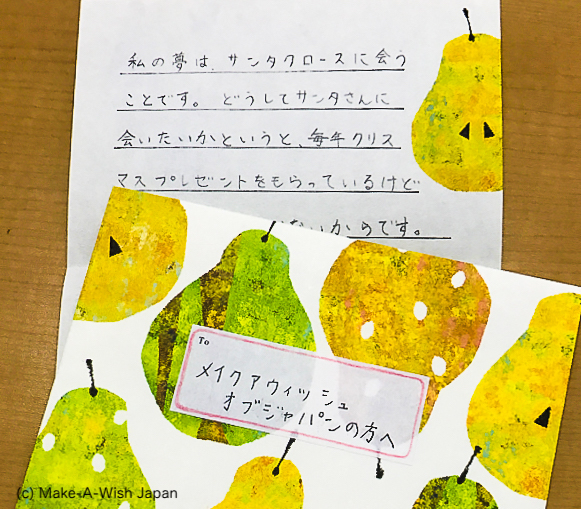 私の夢は、サンタクロースに会う
ことです。どうしてサンタさんに
会いたいかというと、毎年クリス
マスプレゼントをもらっているけど
ないからです。
To
メイクアウィッシュ
オブジャパンの方へ
(c) Make-A-Wish Japan